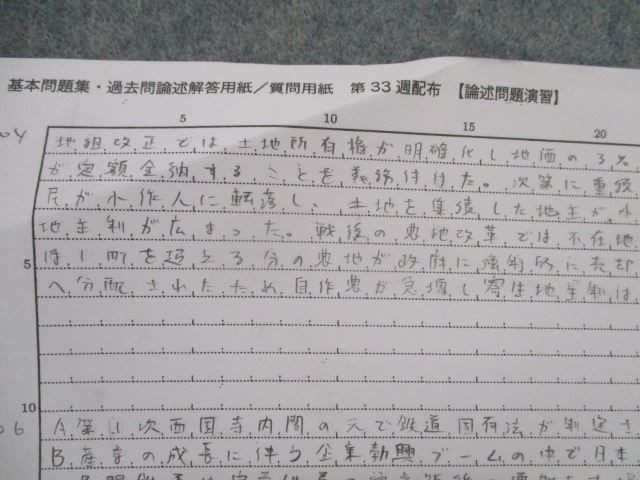 基本問題集・過去問論述解答用紙／質問用紙　第33週配布　【論述問題演習】
5 10 15 20
04
地租改正では、土地所有権が明確化し地価の3%
が定額金納することを義務付けた。次第に重税
民が小作人に転落し、土地を集積した地主が
地主制が広まった。戦後の農地改革では不在地
5
は1町を超える分の農地が政府に強制的に売却
へ分配されたため自作農が急増し寄生地主制は
10
06
A.第1次西園寺内閣の元で鉄道国有法が制定さ
B.産業の成長に伴う企業勃興ブームの中で日本